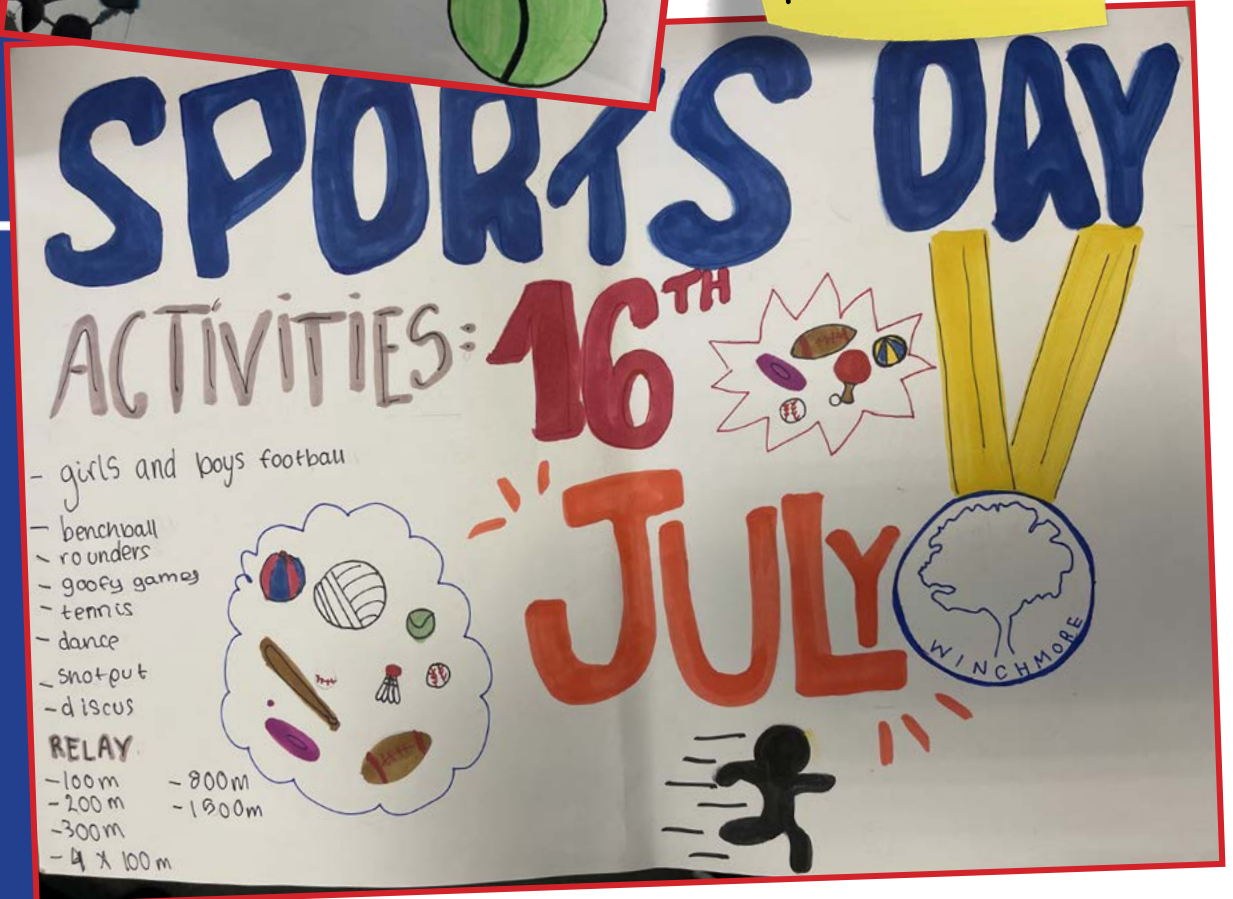 SPORTS DAY
ACTIVITIES:
16TH
JULY
- girls and boys football
- benchball
- rounders
- goofy games
- tennis
- dance
- shotput
- discus
RELAY
-100m
-200m
-300m
-4 X 100m
-800m
-1500m
WINCHMORE